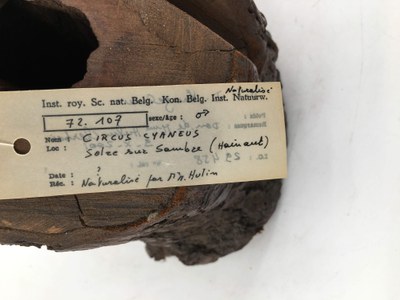 Naturalisé
Inst. roy. Sc. nat. Belg. Kon. Belg. Inst. Natuurw.
72.107 sexe/âge : ♂
Nom : CIRCUS CYANEUS
Loc : Solre sur Sambre (Hainaut)
Date : ?
Réc. : Naturalisé par Hulin